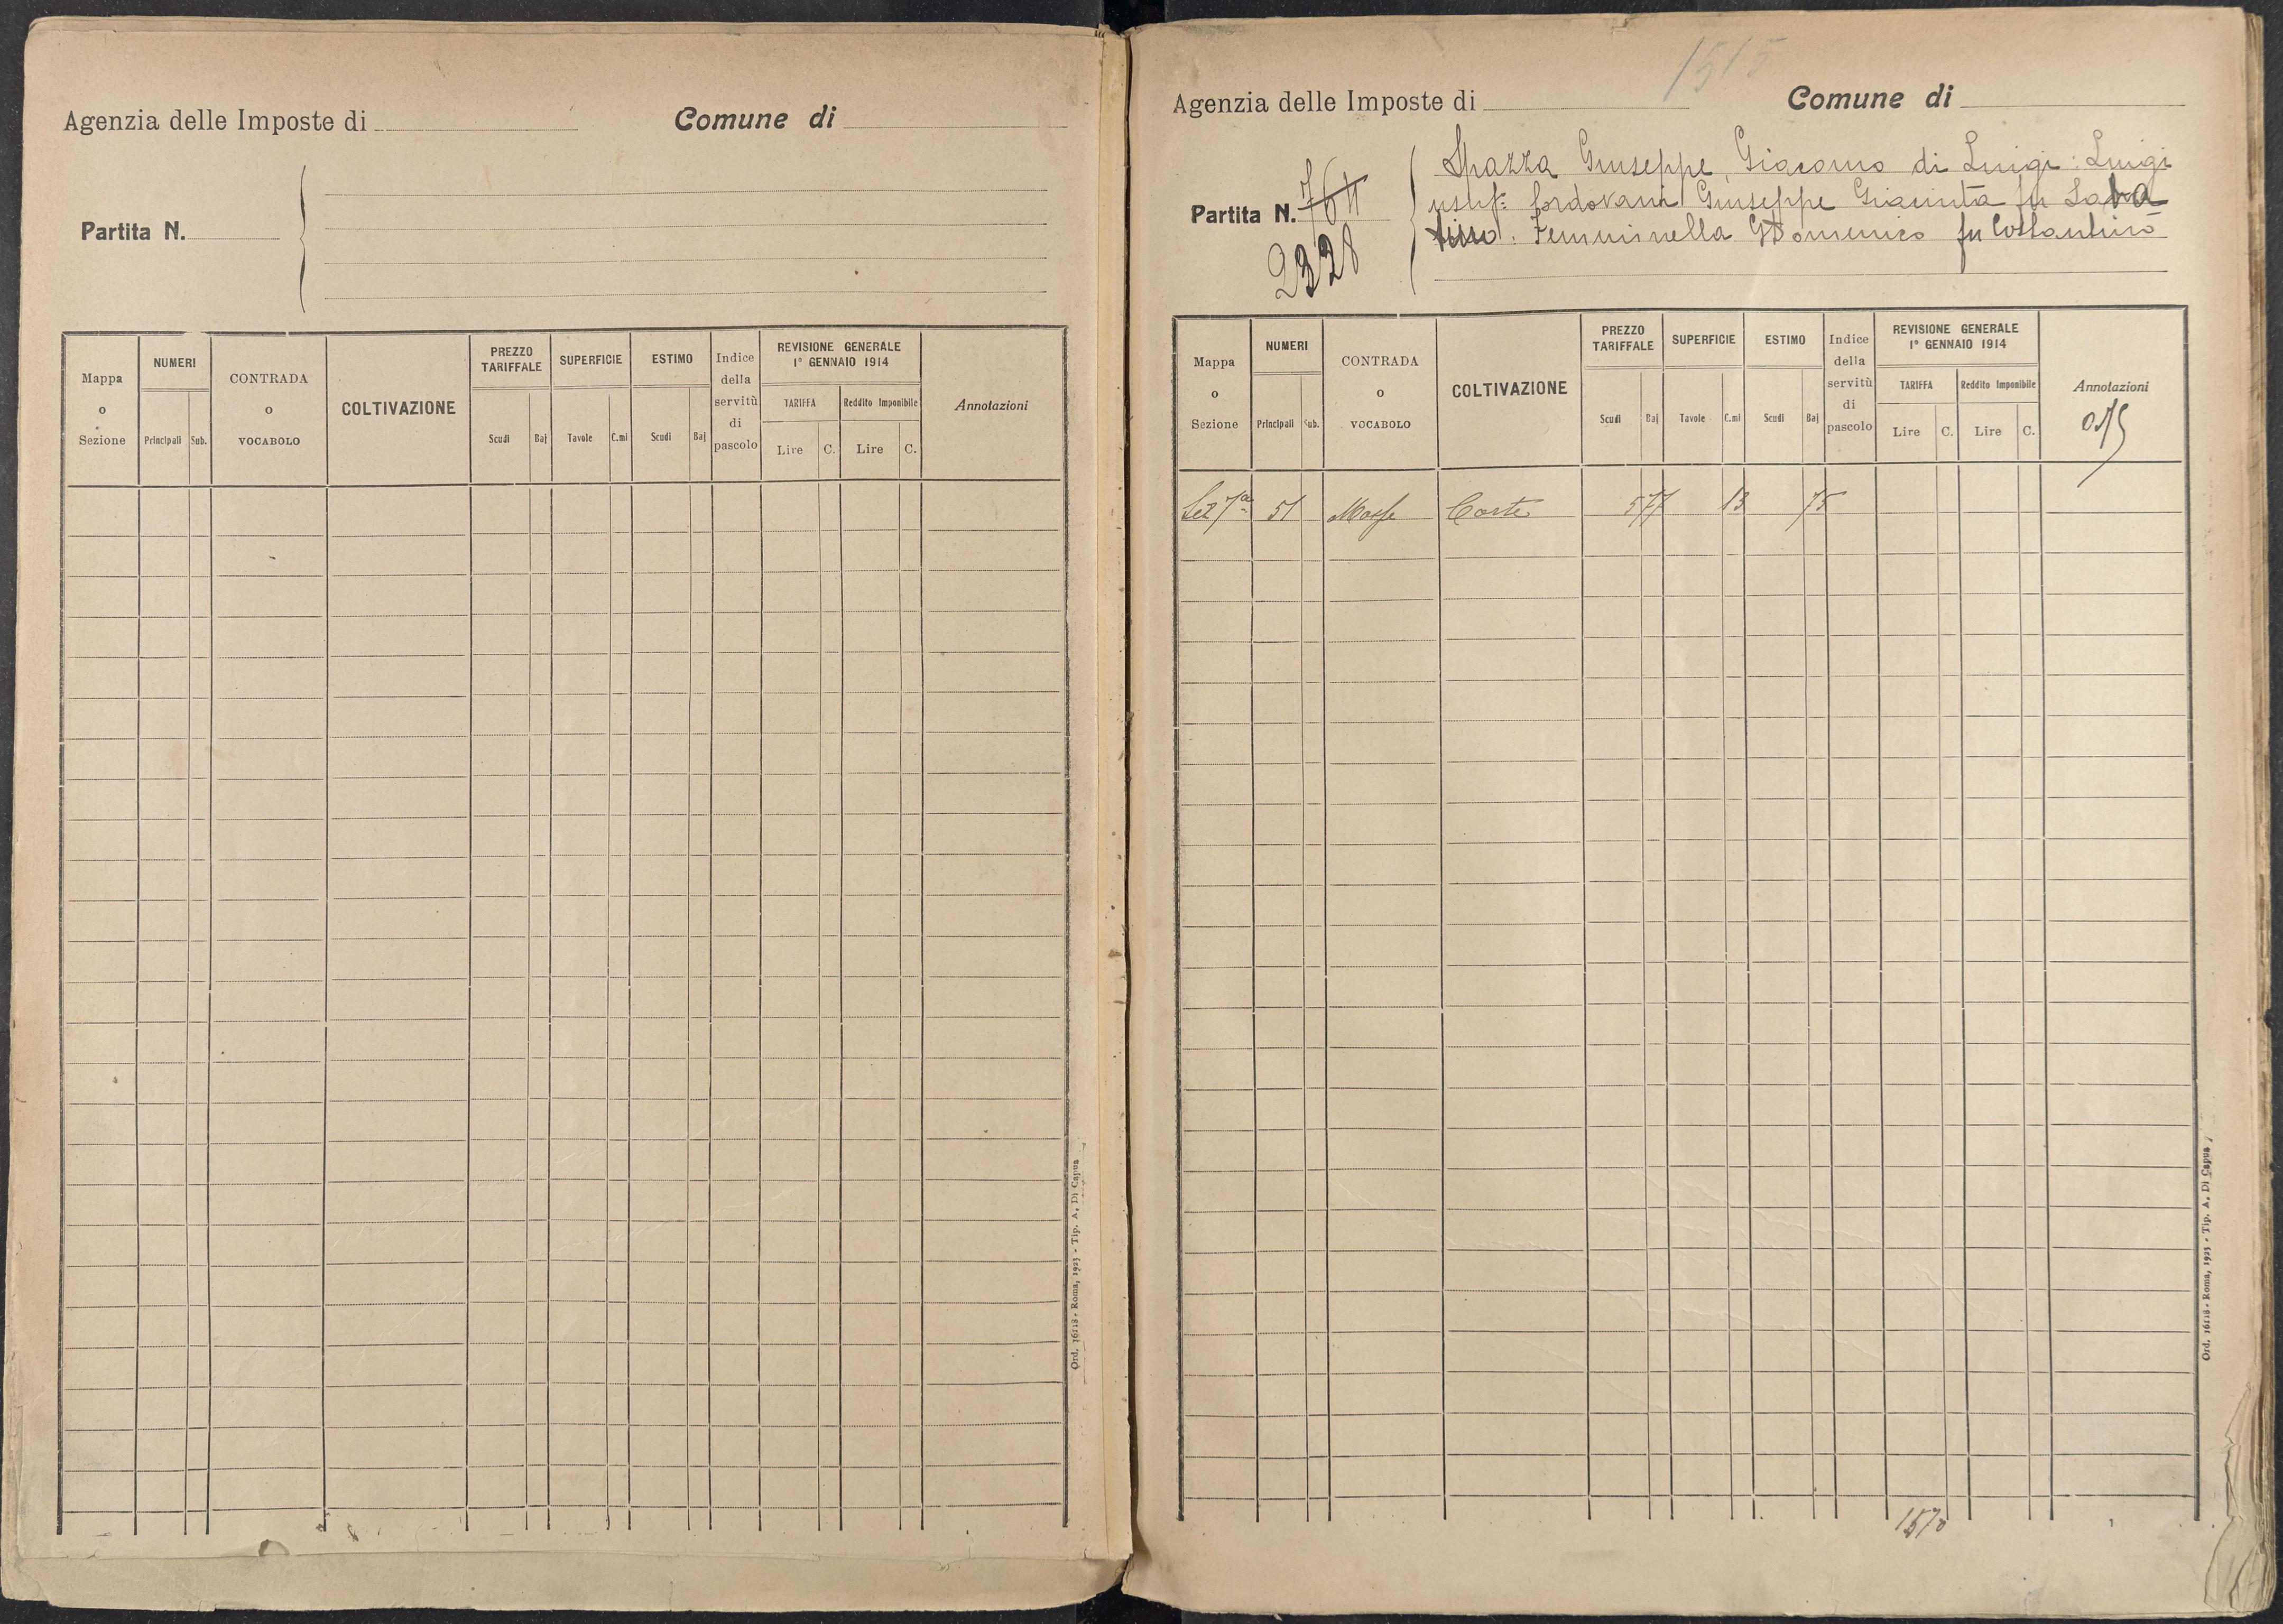 Agenzia delle Imposte di
Comune di
Partita N.
Mappa o Sezione
NUMERI
Principali
Sub.
CONTRADA o VOCABOLO
COLTIVAZIONE
PREZZO TARIFFALE
Scudi
Baj
SUPERFICIE
Tavole
C.mi
ESTIMO
Scudi
Baj
Indice della servitù di pascolo
REVISIONE GENERALE
1° GENNAIO 1914
TARIFFA
Lire
C.
Reddito Imponibile
Lire
C.
Annotazioni
Ord. 16118 - Roma, 1923 - Tip. A. Di Capua
1515
Agenzia delle Imposte di
Comune di
Partita N. 764
2328
Spazza Giuseppe, Giacomo di Luigi: Luigi
usuf: Cordovani Giuseppe Giacinta fu Saba
tino: Femminella Domenico fu Costantino
Mappa o Sezione
NUMERI
Principali
Sub.
CONTRADA o VOCABOLO
COLTIVAZIONE
PREZZO TARIFFALE
Scudi
Baj
SUPERFICIE
Tavole
C.mi
ESTIMO
Scudi
Baj
Indice della servitù di pascolo
REVISIONE GENERALE
1° GENNAIO 1914
TARIFFA
Lire
C.
Reddito Imponibile
Lire
C.
Annotazioni
075
Sez 7a 51 Corte 577 13 75
1570
Ord. 16118 - Roma, 1923 - Tip. A. Di Capua